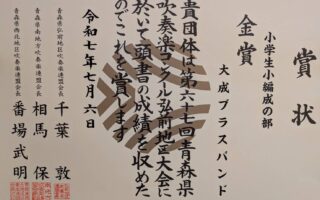 賞状
小学生小編成の部
金賞
大成ブラスバンド
貴団体は第六十七回青森県
吹奏楽コンクール弘前地区大会に
於いて頭書の成績を収めた
のでこれを賞します
令和七年七月六日
青森県弘前地区吹奏楽連盟会長
千葉敦
青森県南地方吹奏楽連盟会長
相馬保
青森県西北地区吹奏楽連盟会長
番場武明